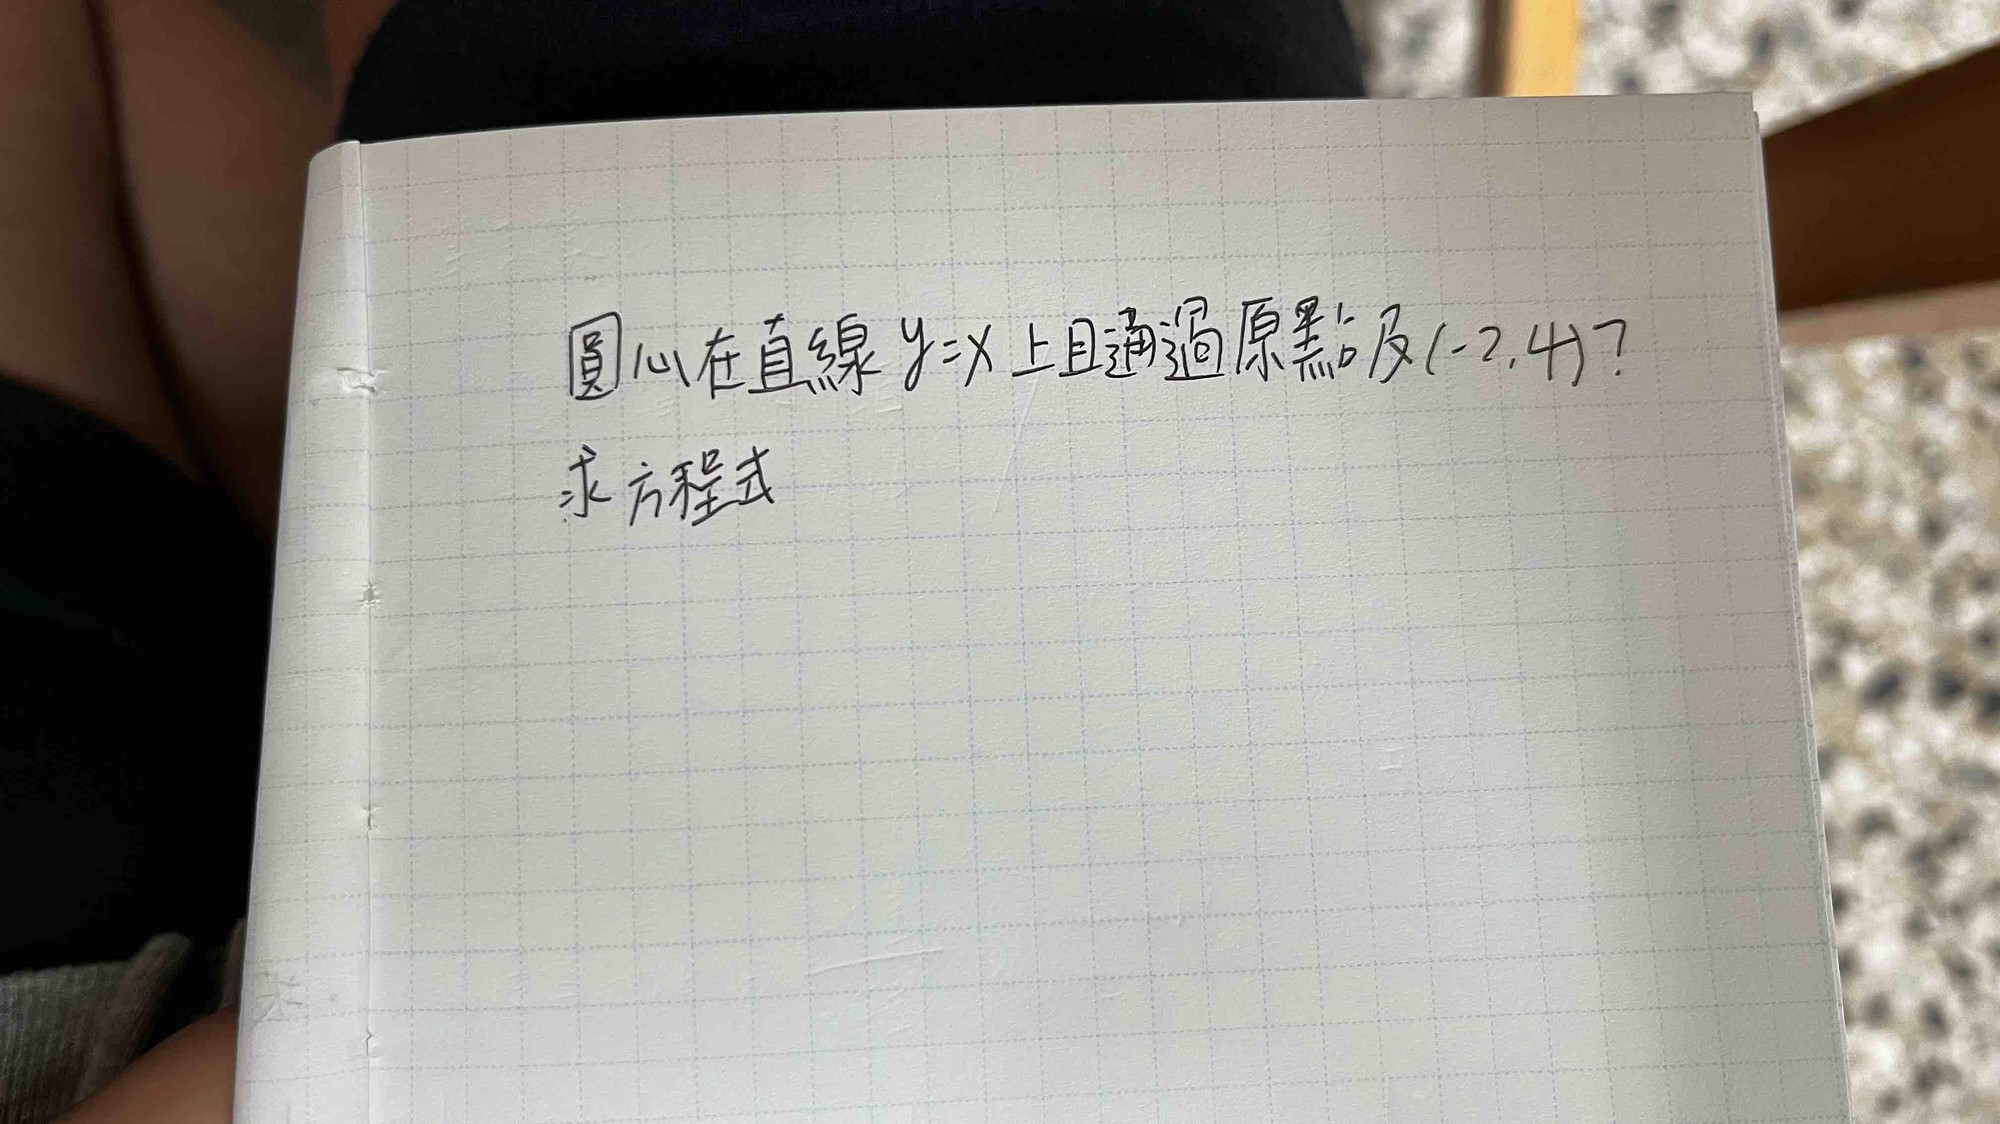 圓心在直線 y=x 上且通過原點及(-2,4)?
求方程式